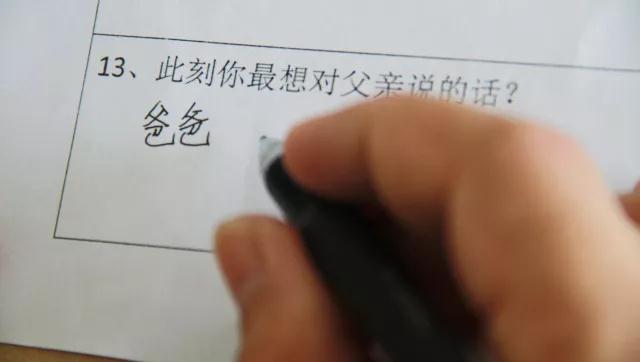 13、此刻你最想对父亲说的话？
爸爸